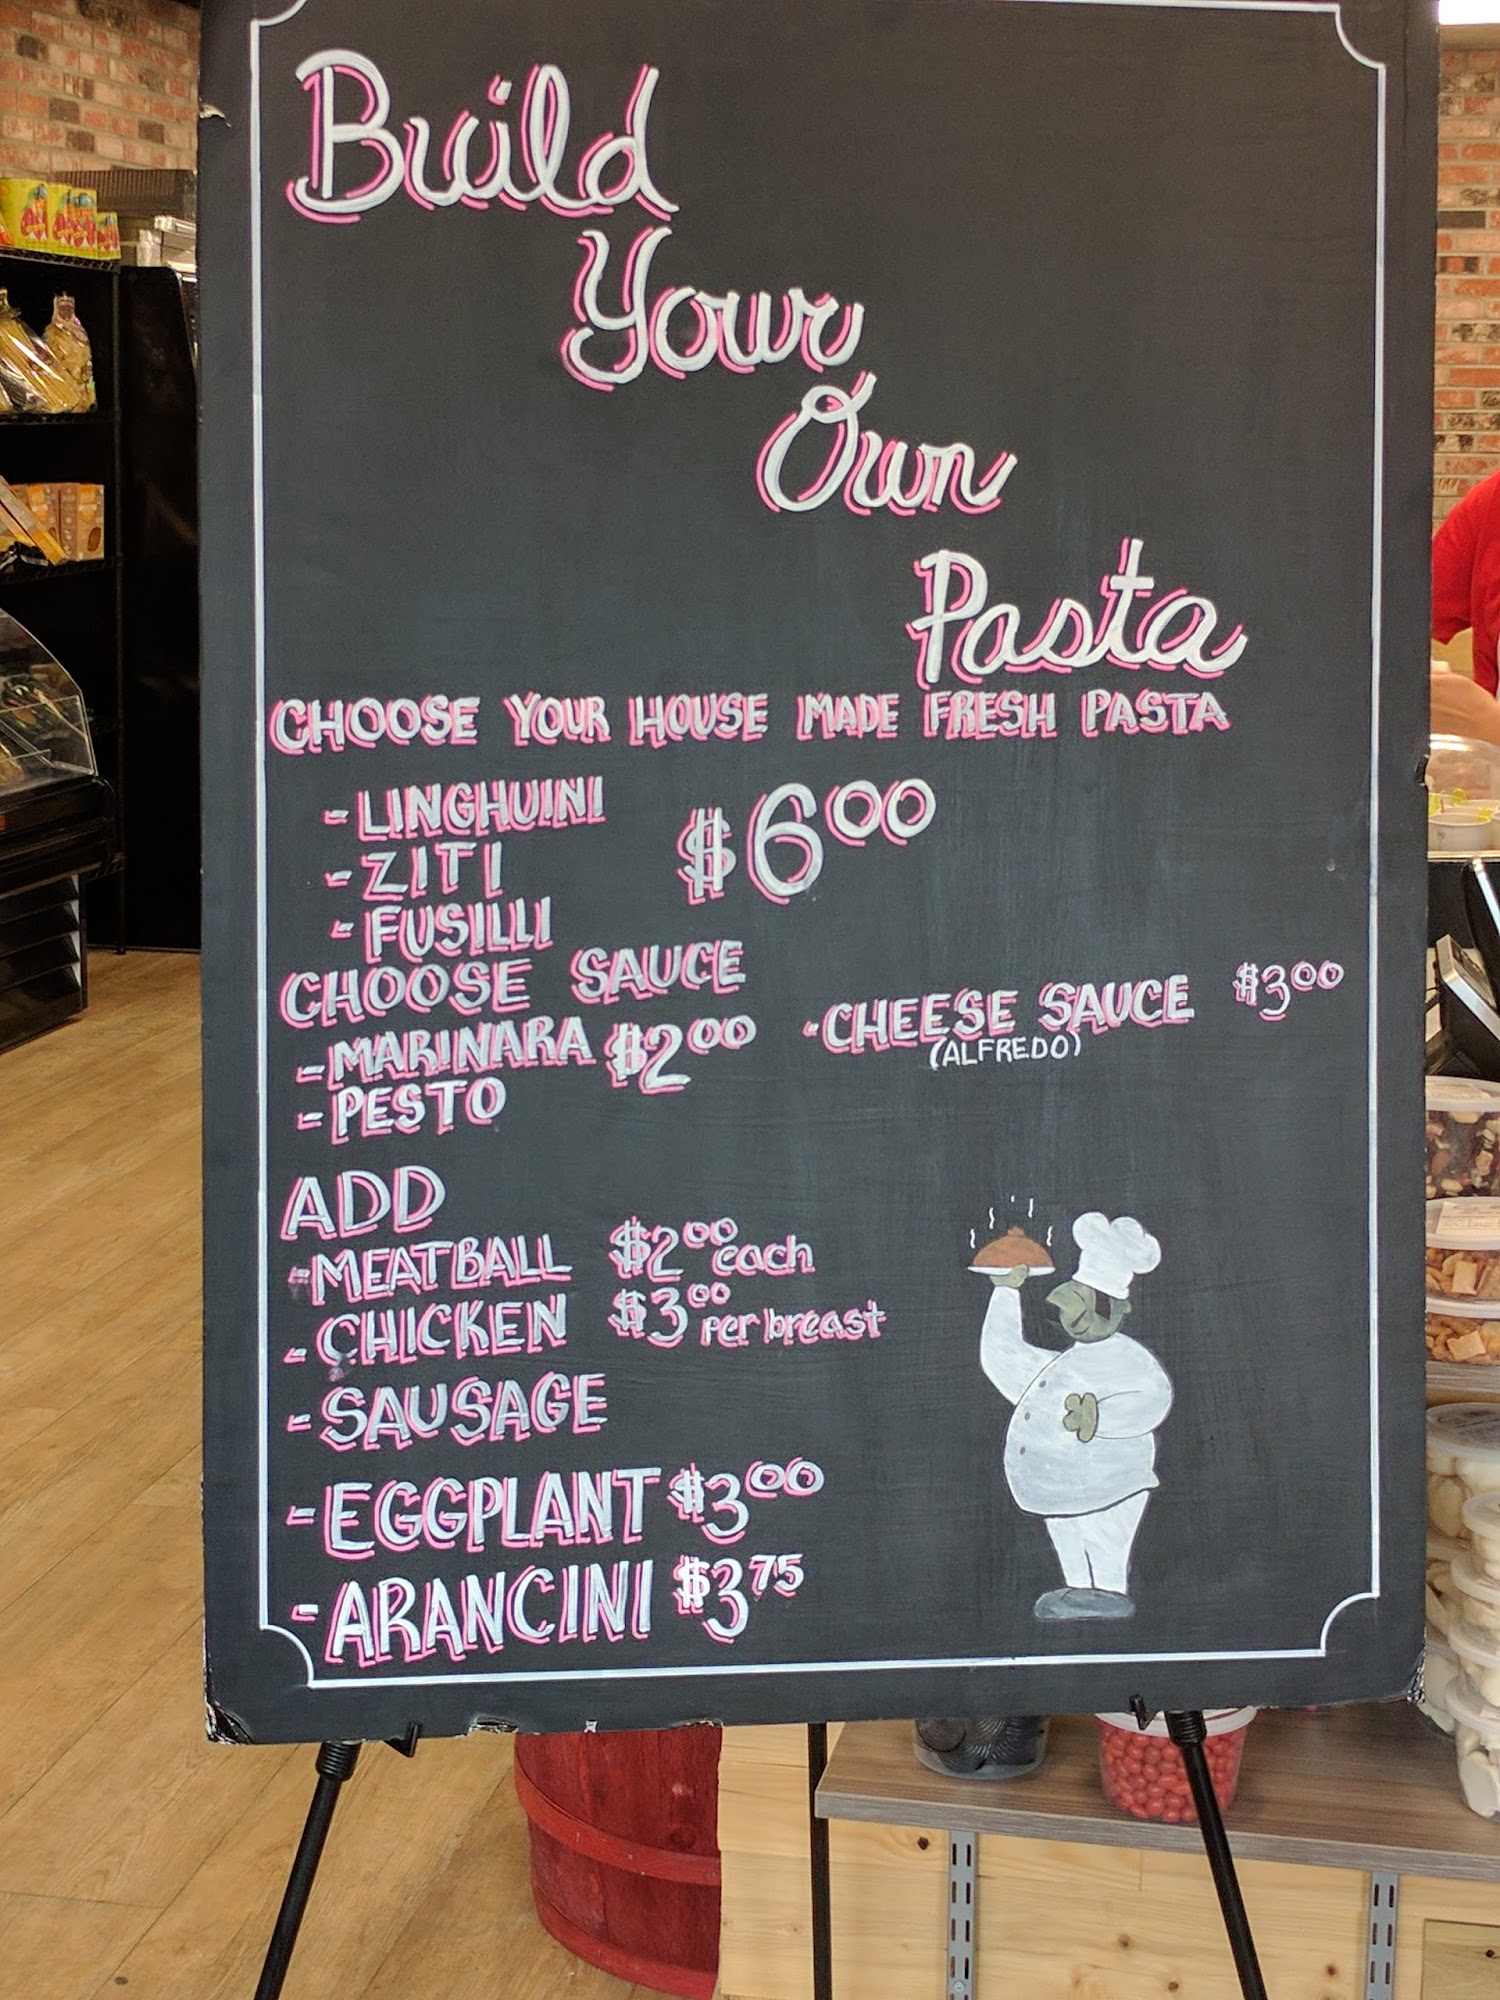 Build
Your
Own
Pasta
CHOOSE YOUR HOUSE MADE FRESH PASTA
- LINGHUINI $6.00
- ZITI
- FUSILLI
CHOOSE SAUCE
- MARINARA $2.00 - CHEESE SAUCE $3.00
(ALFREDO)
- PESTO
ADD
- MEATBALL $2.00 each
- CHICKEN $3.00 per breast
- SAUSAGE
- EGGPLANT $3.00
- ARANCINI $3.75